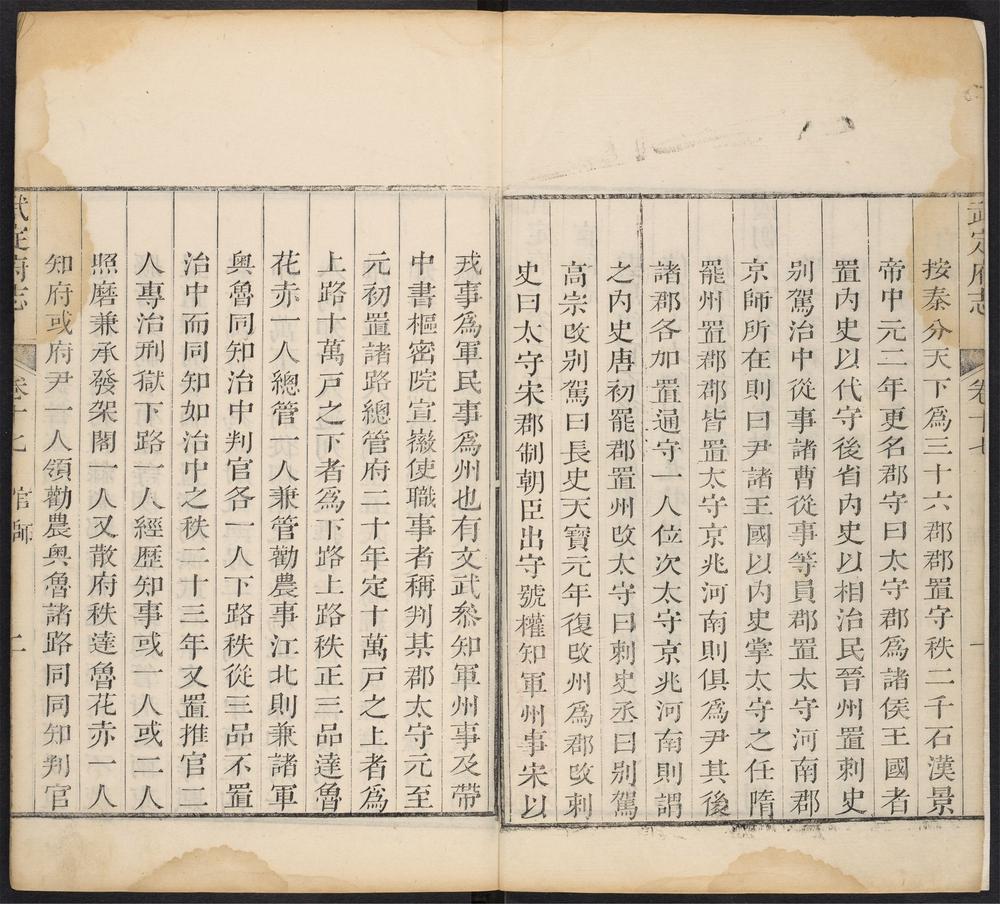 武定府志 卷十七 一
按秦分天下爲三十六郡郡置守秩二千石漢景
帝中元二年更名郡守曰太守郡爲諸侯王國者
置內史以代守後省內史以相治民晉州置刺史
別駕治中從事諸曹從事等員郡置太守河南郡
京師所在則曰尹諸王國以內史掌太守之任隋
罷州置郡郡皆置太守京兆河南則俱爲尹其後
諸郡各加置通守一人位次太守京兆河南則謂
之內史唐初罷郡置州改太守曰刺史丞曰別駕
高宗改别駕曰長史天寶元年復改州爲郡改刺
史曰太守宋郡制朝臣出守號權知軍州事宋以
戎事爲軍民事爲州也有文武叅知軍州事及帶
中書樞密院宣徽使職事者稱判某郡太守元至
元初置諸路總管府二十年定十萬戸之上者爲
上路十萬戸之下者爲下路上路秩正三品達魯
花赤一人總管一人兼管勸農事江北則兼諸軍
奧魯同知治中判官各一人下路秩從三品不置
治中而同知如治中之秩二十三年又置推官二
人專治刑獄下路一人經歷知事或一人或二人
照磨兼承發架閣一人又散府秩達魯花赤一人
知府或府尹一人領勸農奧魯諸路同同知判官
武定府志 卷十七 官師 二